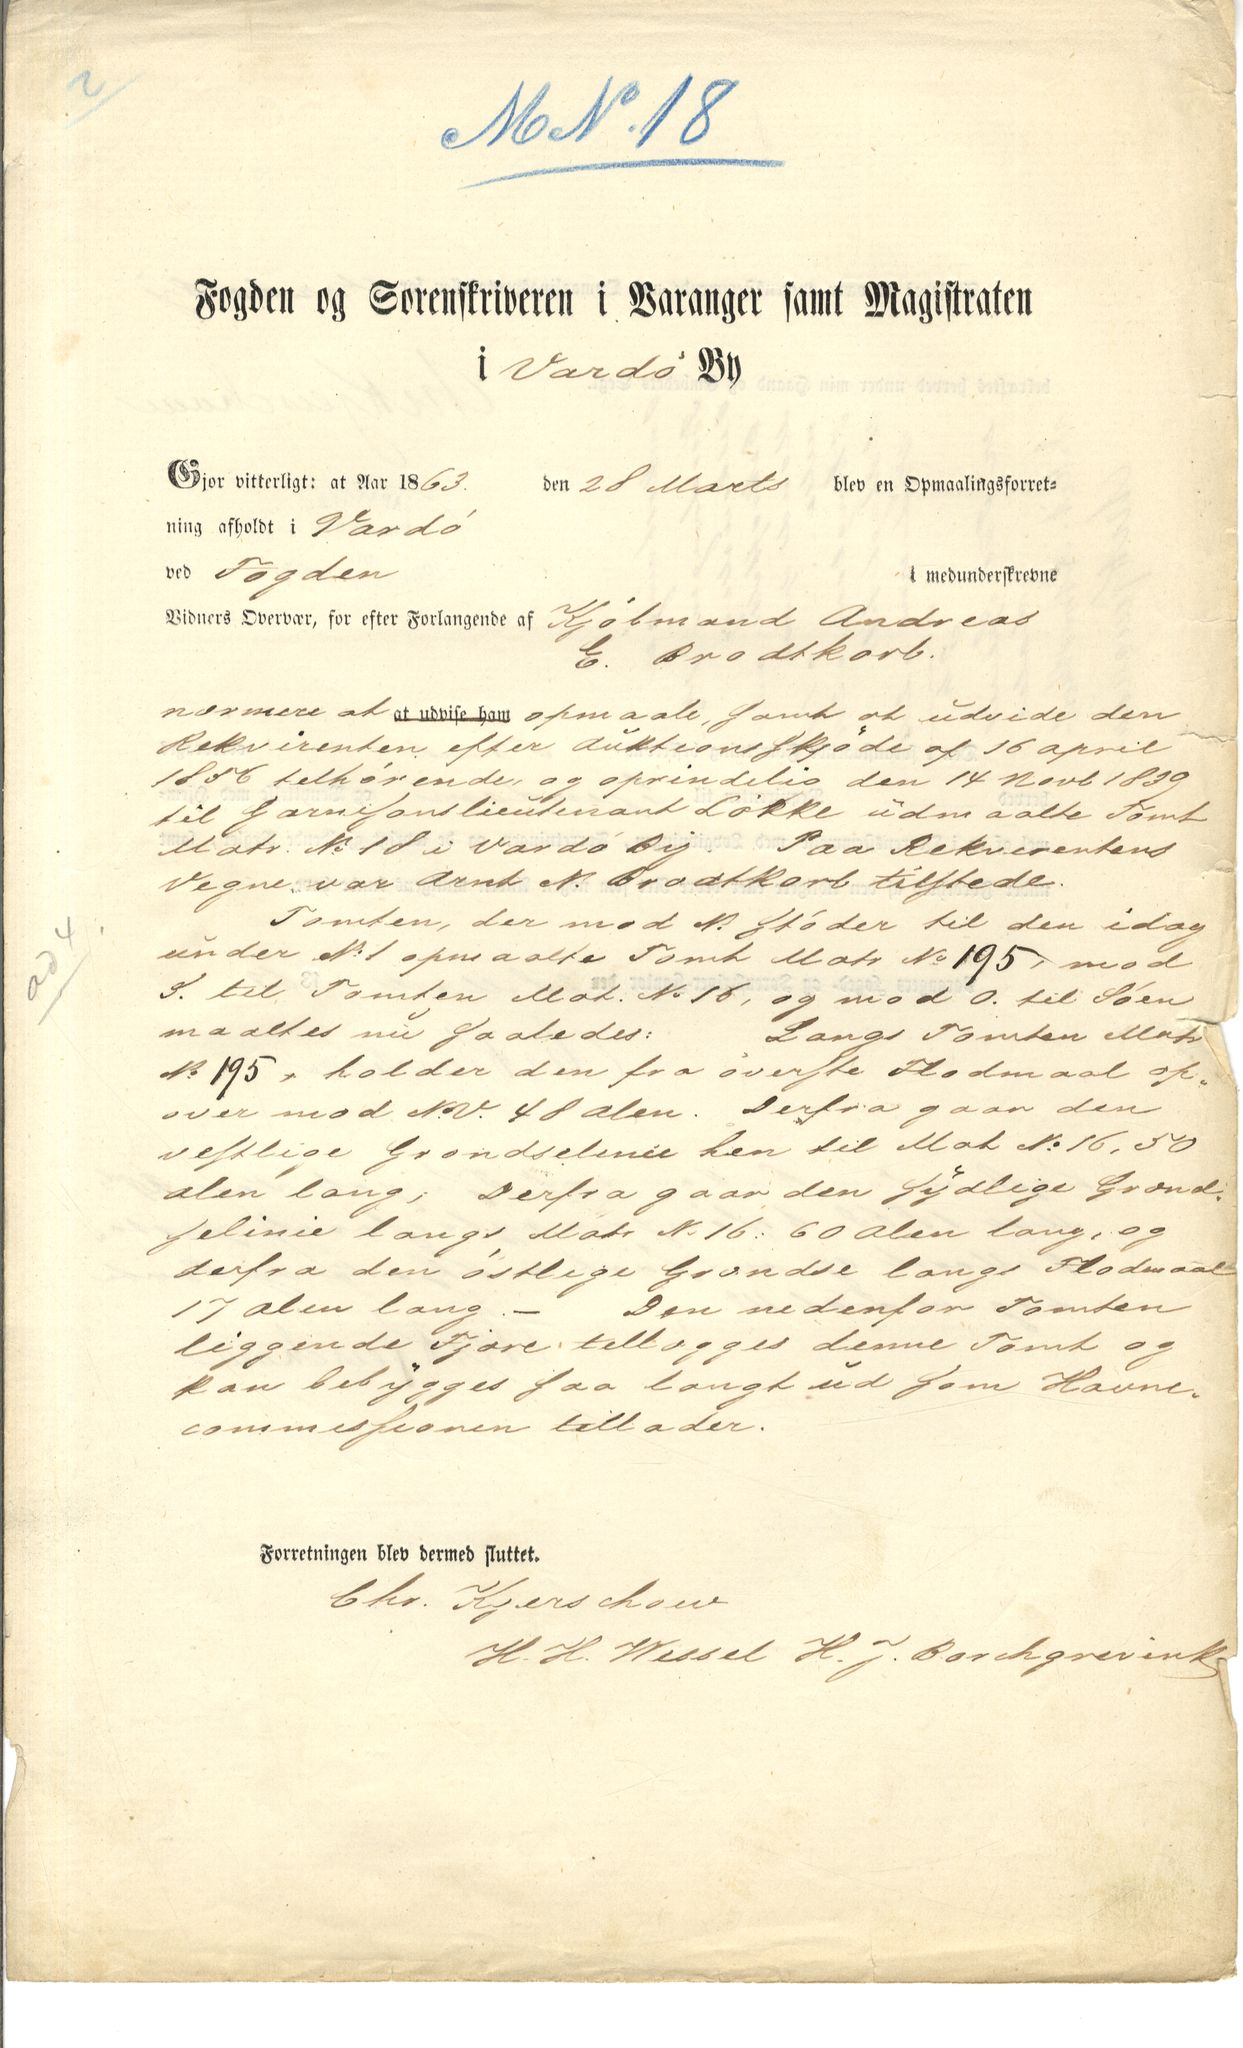 2
M No. 18
Fogden og Sorenskriveren i Varanger samt Magistraten
i Vardö By
Gjør vitterligt: at Aar 1863. den 28 Marts blev en Opmaalingsforret-
ning afholdt i Vardö
ved Fogden i medunderskrevne
Vidners Overvær, for efter Forlangende af Kjöbmand Andreas
E. Brodtkorb.
nærmere at at udvise ham opmaale, samt at udvide den
Rekvirenten efter Auktionsskjöde af 16 april
1856 telhörende, og oprindelig den 14 Novb 1839
til Garnisonslieutenant Lökke udmaalte Tomt
Matr. No 18 i Vardö By. Paa Rekvirentens
Vegne var Arnt N. Brodtkorb tilstede.
Tomten, der mod N. stöder til den idag
under No 1 opmaalte Tomt Matr No 195, mod
S. til Tomten Mat. No 16, og mod O. til Söen
maaltes nu saaledes: Langs Tomten Matr
No 195, holder den fra överste Flodmaal op-
over mod N.V. 48 alen. Derfra gaar den
vestlige Grændselinie hen til Mat No 16, 50
alen lang; Derfra gaar den sydlige Grænd-
selinie langs Matr No 16: 60 Alen lang, og
derfra den östlige Grændse langs Flodmaal
17 alen lang. — Den nedenfor Tomten
liggende Fjære tillægges denne Tomt og
kan bebygges saa langt ud som Havne-
commissionen tillader.
ad 4.
Forretningen blev dermed sluttet.
Chr. Kjerschow
H. H. Wessel H. J. Borchgrevink